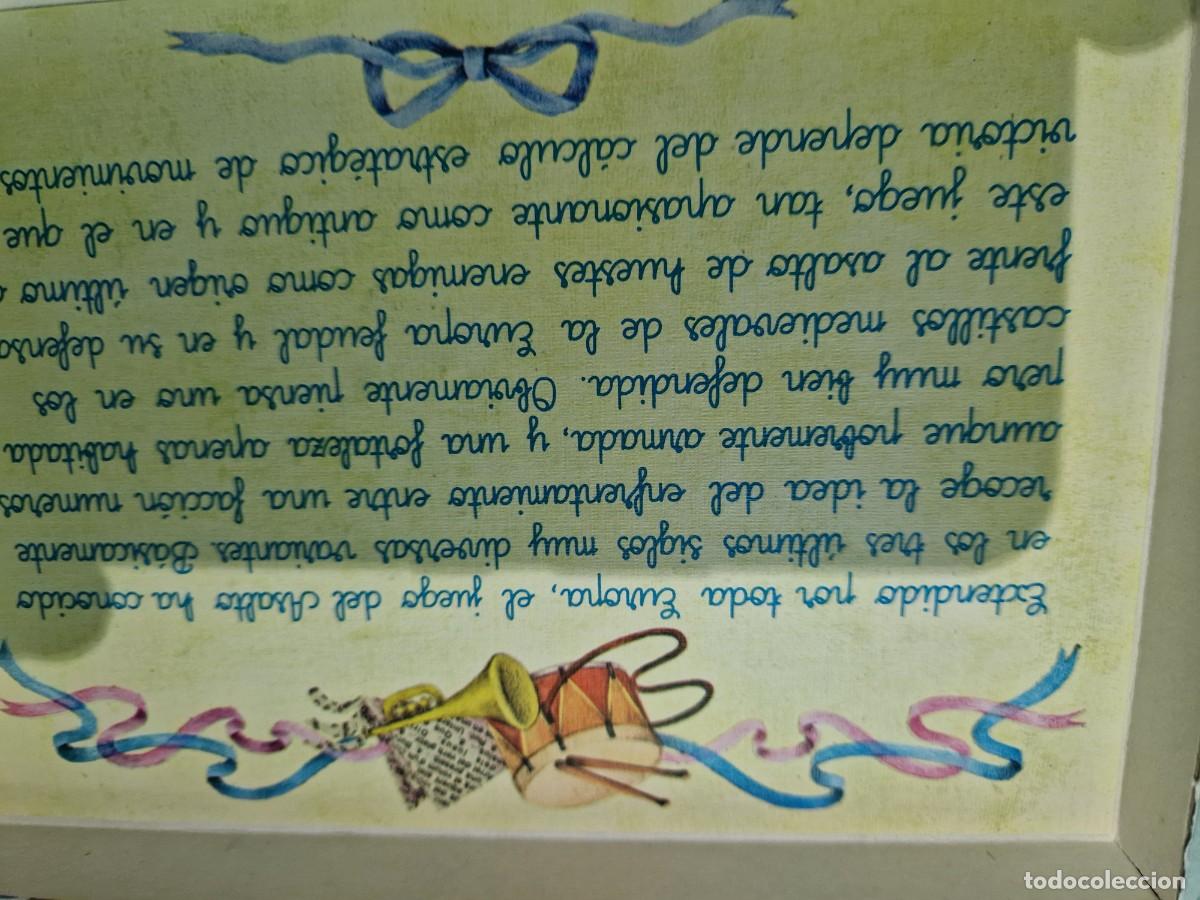 Extendido por toda Europa, el juego del Asalto ha conocido
en los tres últimos siglos muy diversas variantes. Básicamente
recoge la idea del enfrentamiento entre una facción numeros
aunque pobremente armada, y una fortaleza apenas habitada
pero muy bien defendida. Obviamente piensa uno en los
castillos medievales de la Europa feudal y en su defensa
frente al asalto de huestes enemigas como origen último
este juego, tan apasionante como antiguo y en el que
victoria depende del cálculo estratégico de movimientos
todocoleccion